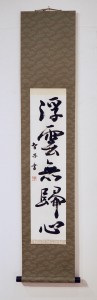 浮雲無歸心